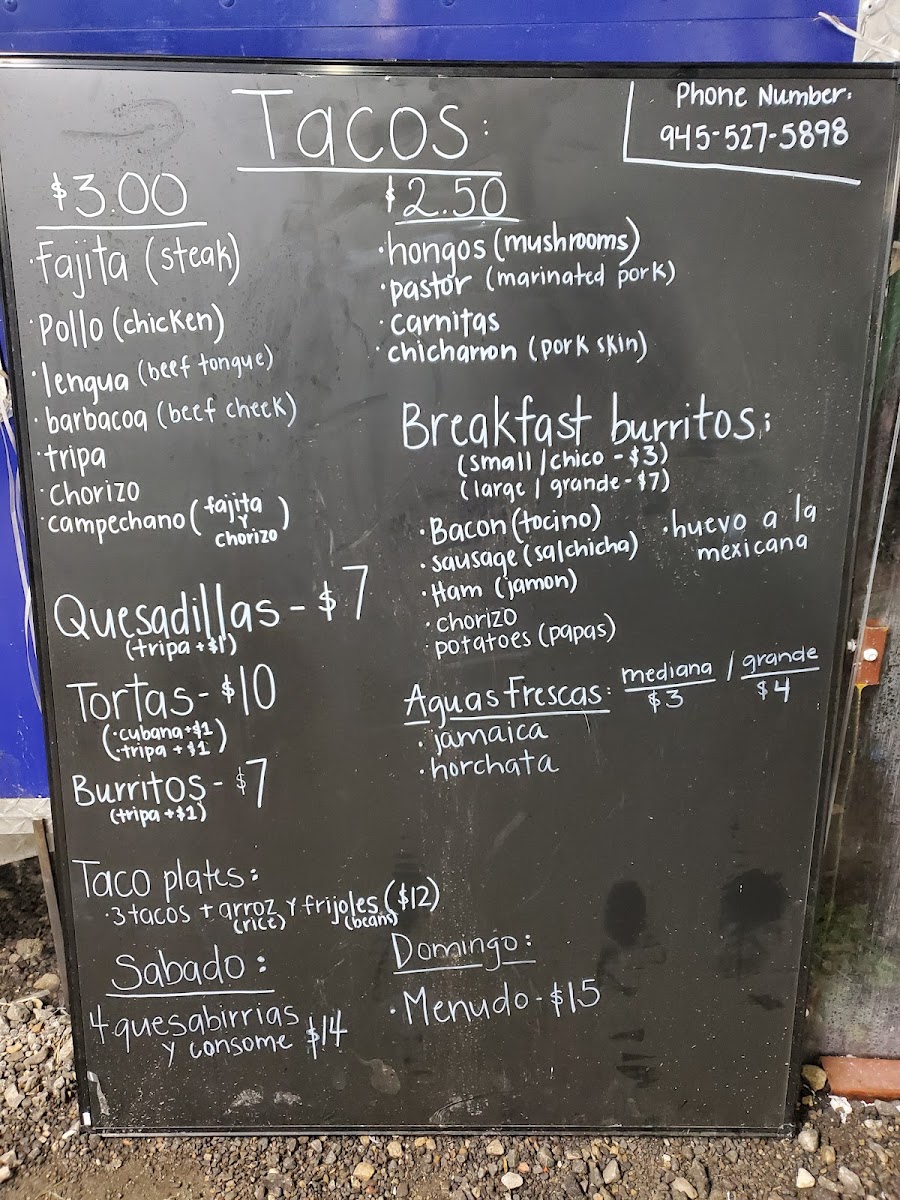 Tacos:
Phone Number:
945-527-5898
$3.00
·Fajita (steak)
·Pollo (chicken)
·lengua (beef tongue)
·barbacoa (beef cheek)
·tripa
·Chorizo
·campechano (fajita
y
chorizo)
$2.50
·hongos (mushrooms)
·pastor (marinated pork)
·carnitas
·chicharron (pork skin)
Breakfast burritos:
(small / chico - $3)
(large / grande - $7)
·Bacon (tocino)
·sausage (salchicha)
·Ham (jamon)
·chorizo
·potatoes (papas)
·huevo a la
mexicana
Quesadillas - $7
(tripa +$1)
Tortas - $10
(·cubana +$1
·tripa + $1)
Burritos - $7
(tripa +$1)
Aguas Frescas: mediana / grande
$3 $4
·jamaica
·horchata
Taco plates:
·3 tacos + arroz y frijoles ($12)
(rice) (beans)
Sabado:
4 quesabirrias
y consome $14
Domingo:
·Menudo - $15